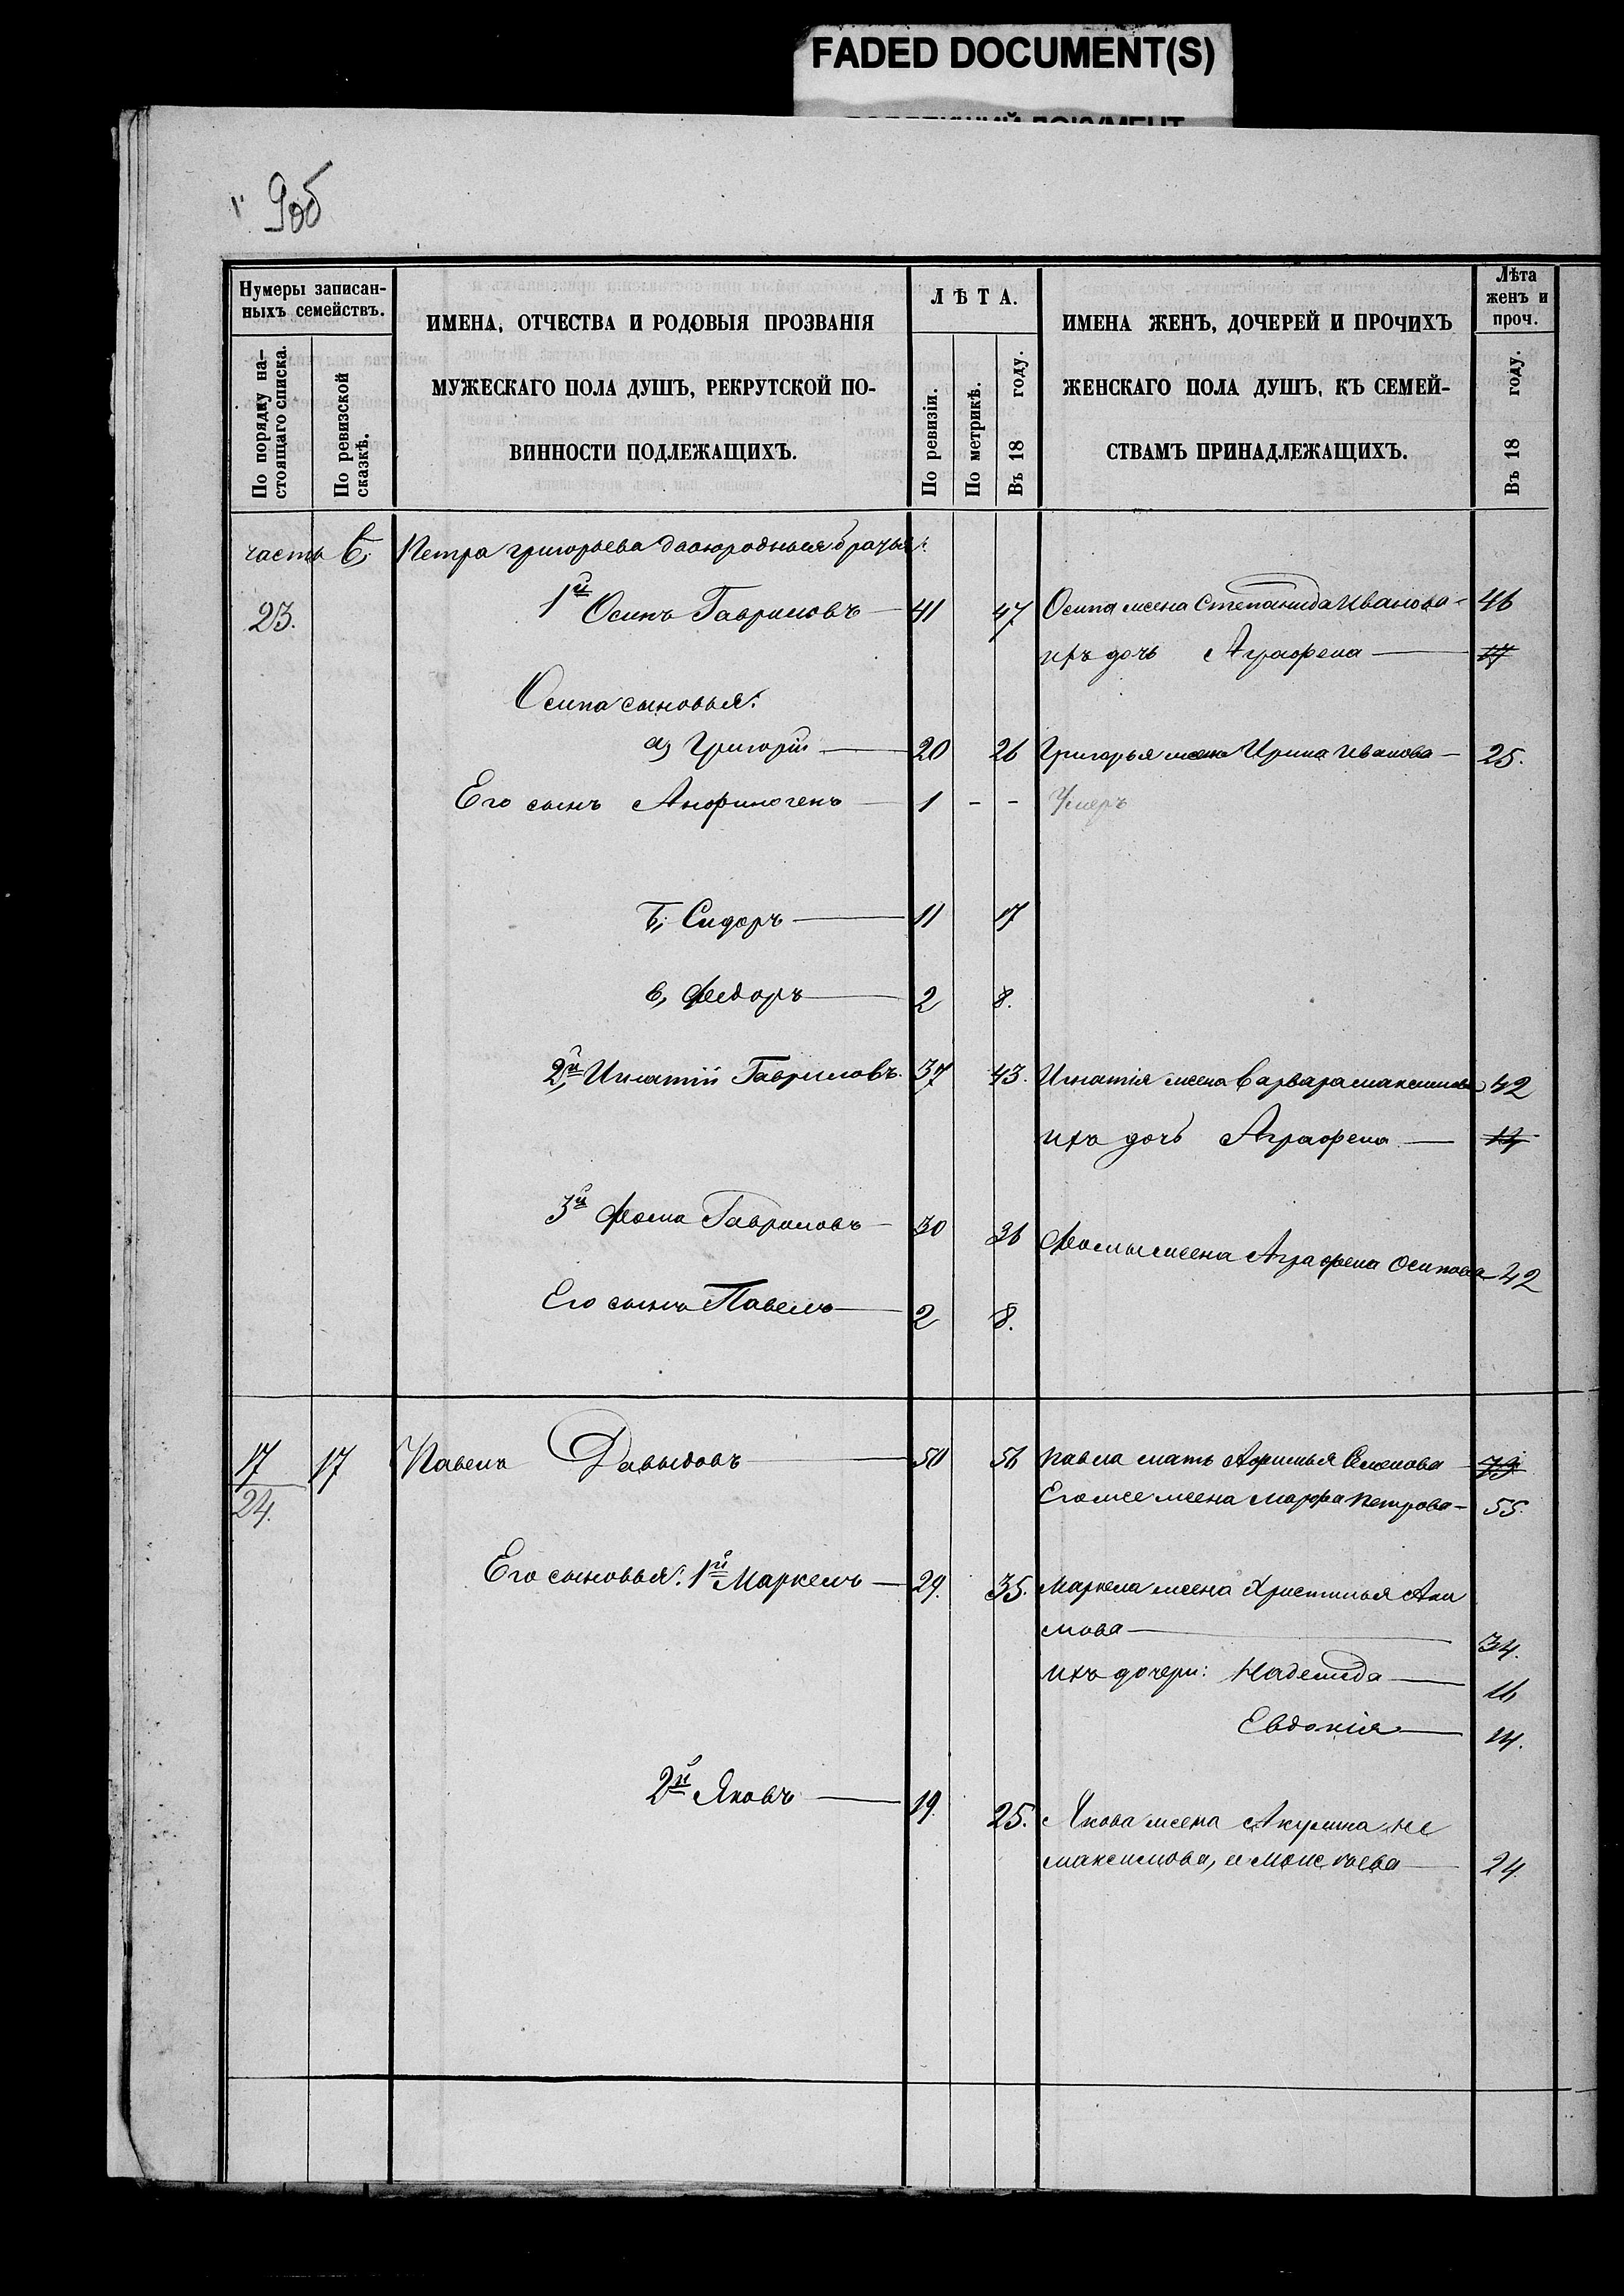 FADED DOCUMENT(S)
9об
Нумеры записан-
ныхъ семействъ.
По порядку на-
стоящаго списка.
По ревизской
сказкѣ.
ИМЕНА, ОТЧЕСТВА И РОДОВЫЯ ПРОЗВАНІЯ
МУЖЕСКАГО ПОЛА ДУШЪ, РЕКРУТСКОЙ ПО-
ВИННОСТИ ПОДЛЕЖАЩИХЪ.
ЛѢТА.
По ревизіи.
По метрикѣ.
Въ 18 году.
ИМЕНА ЖЕНЪ, ДОЧЕРЕЙ И ПРОЧИХЪ
ЖЕНСКАГО ПОЛА ДУШЪ, КЪ СЕМЕЙ-
СТВАМЪ ПРИНАДЛЕЖАЩИХЪ.
Лѣта
женъ и
проч.
Въ 18 году.
часть б, Петра Григорьева двоюродныя братья:
23. 1й Осипъ Гавриловъ 41 47 Осипа жена Степанида Иванова 46
ихъ дочь Аграфена 17
Осипа сыновья:
а, Григорій 20 26 Григорья жена Ирина Иванова 25.
Его сынъ Анфиногенъ 1 - - Умеръ
б, Сидоръ 11 17
в, Федоръ 2 8.
2й, Игнатій Гавриловъ. 37 43. Игнатія жена Варвара Максимова 42
ихъ дочь Аграфена
3й Фома Гавриловъ 30 36 Фомы жена Аграфена Осипова 42
Его сынъ Павелъ 2 8.
17 17 Павелъ Давыдовъ 50 56 Павла мать Афимья Семенова 79
24. Его же жена Марфа Петрова 55.
Его сыновья: 1й Маркелъ 29. 35. Маркела жена Христинья Аки
мова 34.
ихъ дочери: Надежда 16
Евдокія 14.
2й Яковъ 19. 25. Якова жена Акулина не
Максимова, а Моисѣева 24.